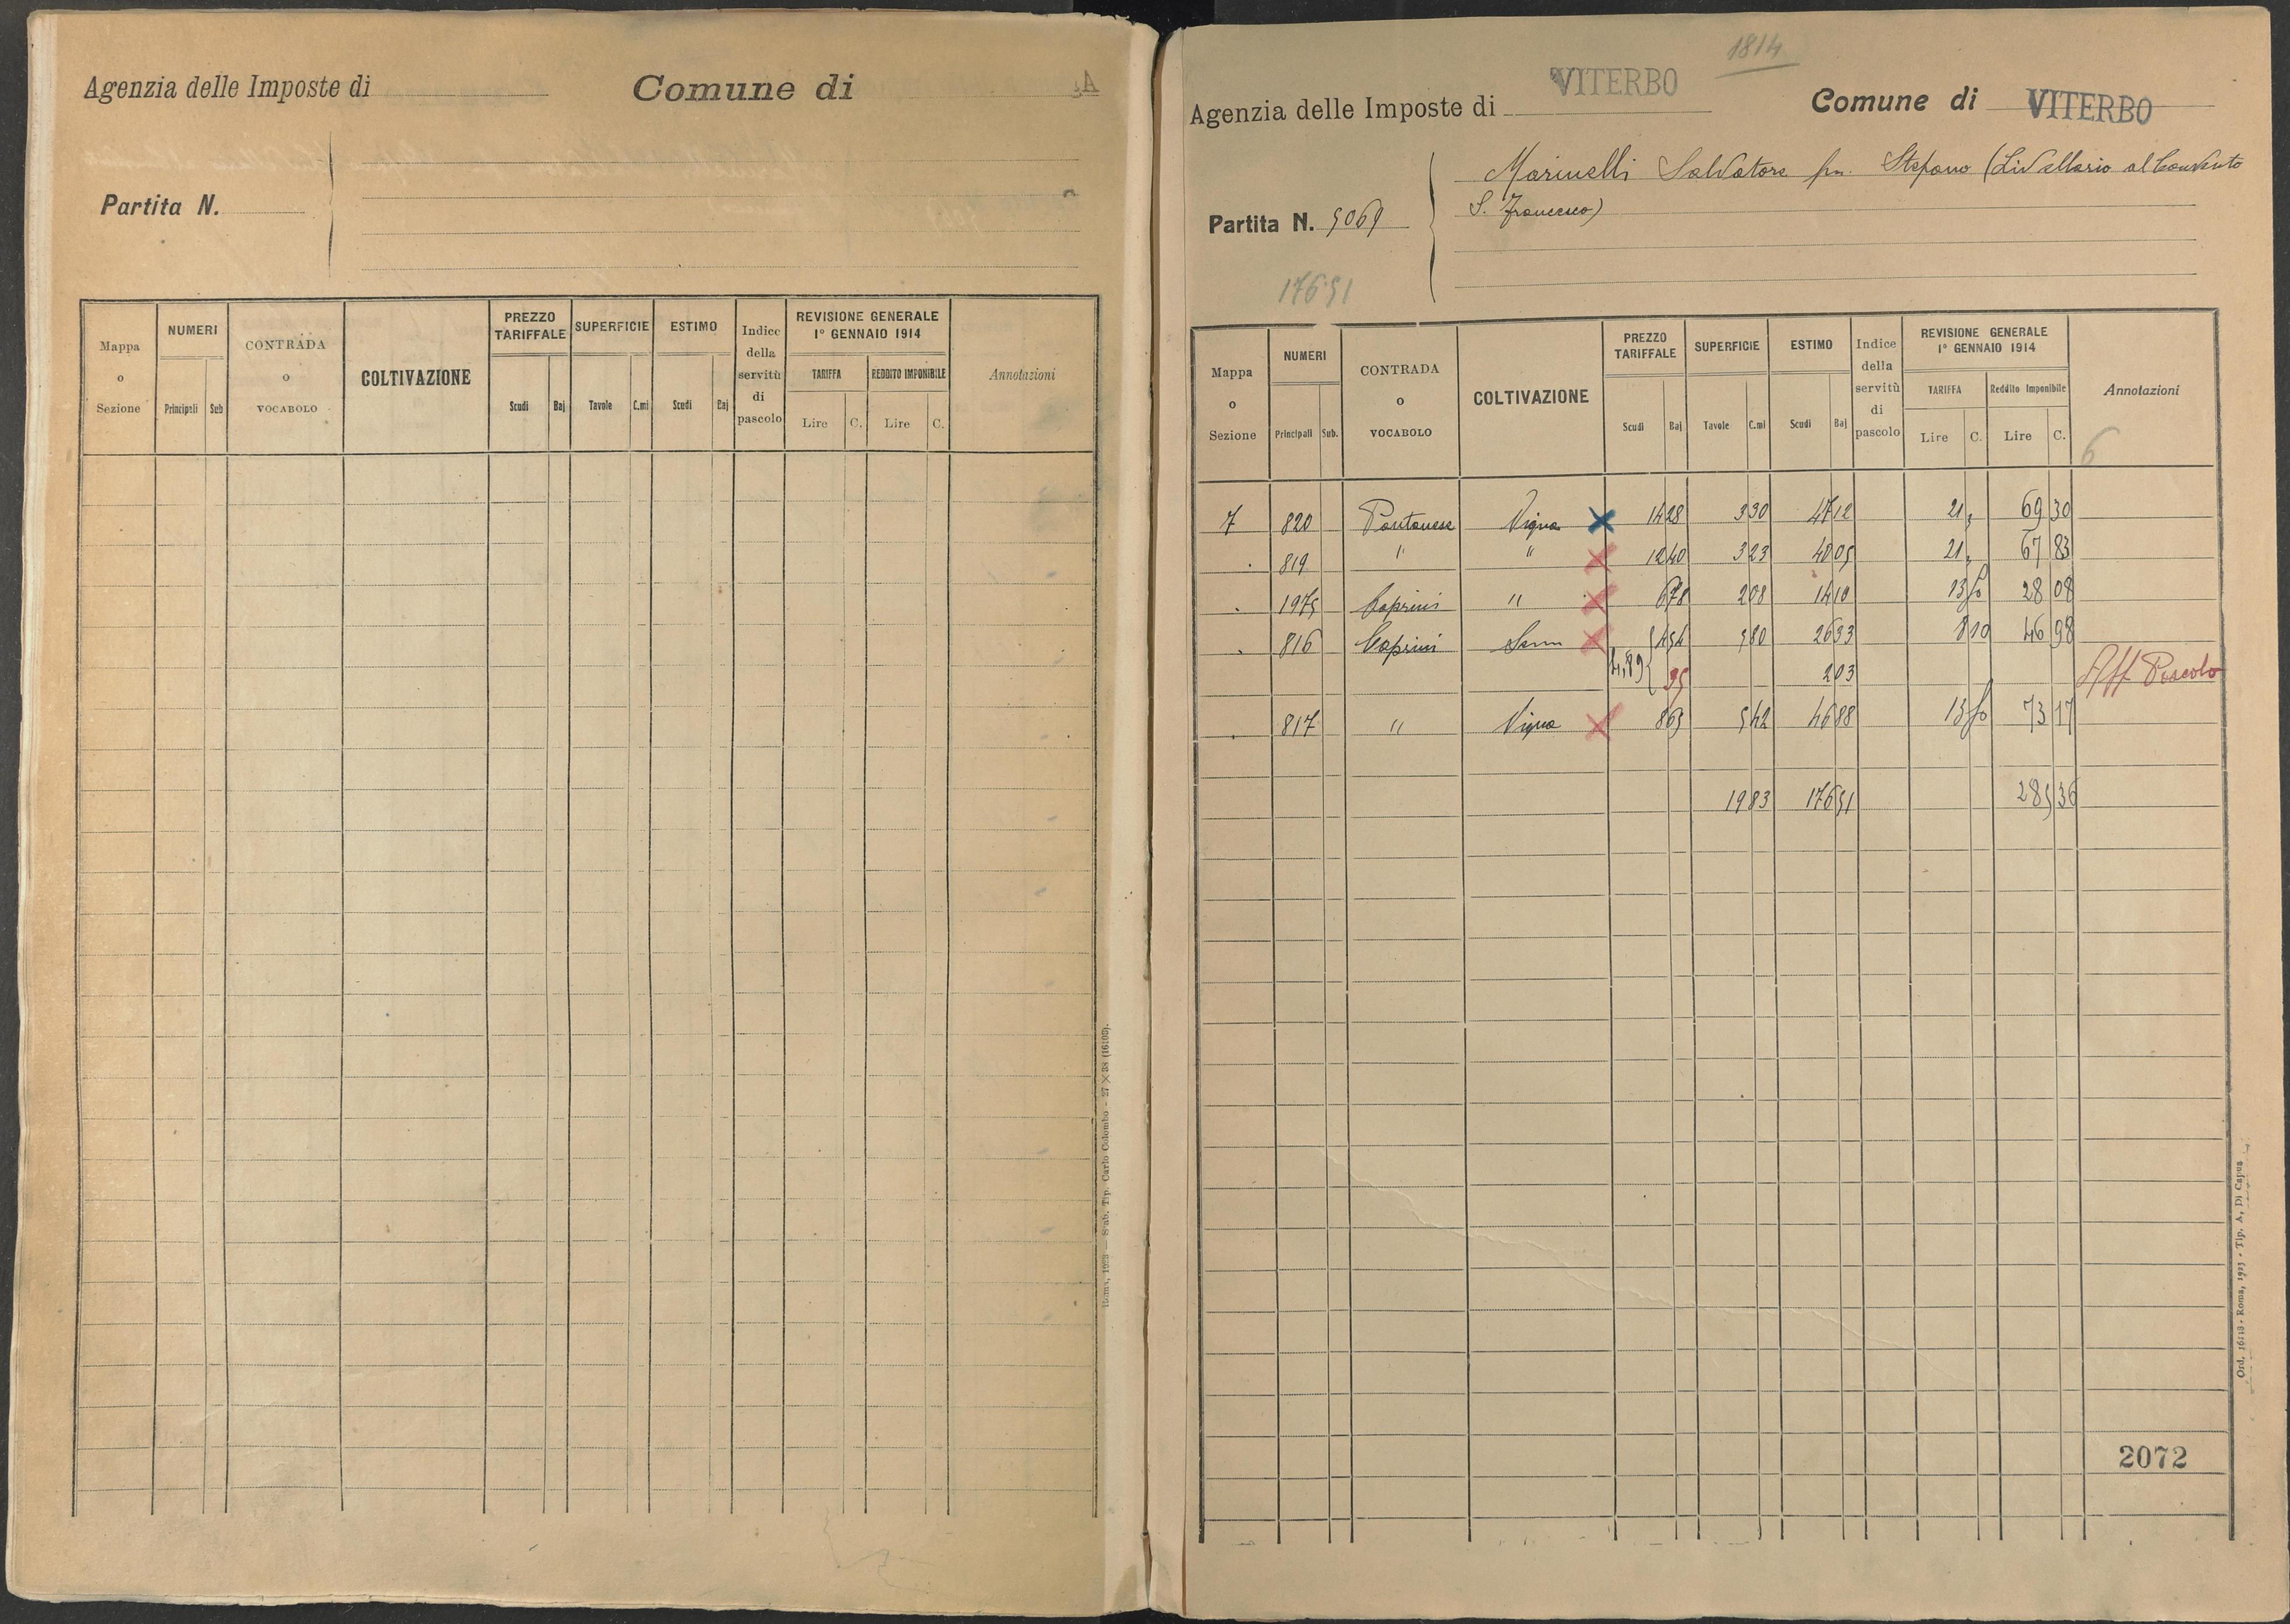 Agenzia delle Imposte di
Comune di
Partita N.
Mappa o Sezione
NUMERI
Principali Sub
CONTRADA o VOCABOLO
COLTIVAZIONE
PREZZO TARIFFALE
Scudi Baj
SUPERFICIE
Tavole C.mi
ESTIMO
Scudi Baj
Indice della servitù di pascolo
REVISIONE GENERALE
1° GENNAIO 1914
TARIFFA
Lire C.
REDDITO IMPONIBILE
Lire C.
Annotazioni
Roma, 1923 — Stab. Tip. Carlo Colombo - 27 × 38 (16109).
1814
Agenzia delle Imposte di VITERBO
Comune di VITERBO
Marinelli Salvatore fu Stefano (Livellario al Convento
S. Francesco)
Partita N. 5069
17651
Mappa o Sezione
NUMERI
Principali Sub.
CONTRADA o VOCABOLO
COLTIVAZIONE
PREZZO TARIFFALE
Scudi Baj
SUPERFICIE
Tavole C.mi
ESTIMO
Scudi Baj
Indice della servitù di pascolo
REVISIONE GENERALE
1° GENNAIO 1914
TARIFFA
Lire C.
Reddito Imponibile
Lire C.
Annotazioni
6
7 820 Pontanese Vigna 14 28 3 30 47 12 21 , 69 30
. 819 " " 12 40 3 23 40 05 21 , 67 83
. 1975 Caprini " 6 78 2 08 14 10 13 50 28 08
. 816 Caprini Sem 4 54 5 80 26 33 8 10 46 98
4,89 { 35 2 03 Aff Pascolo
. 817 " Vigna 8 65 5 42 46 88 13 50 73 17
19 83 176 51 285 36
2072
Ord. 16118 - Roma, 1923 - Tip. A. Di Capua